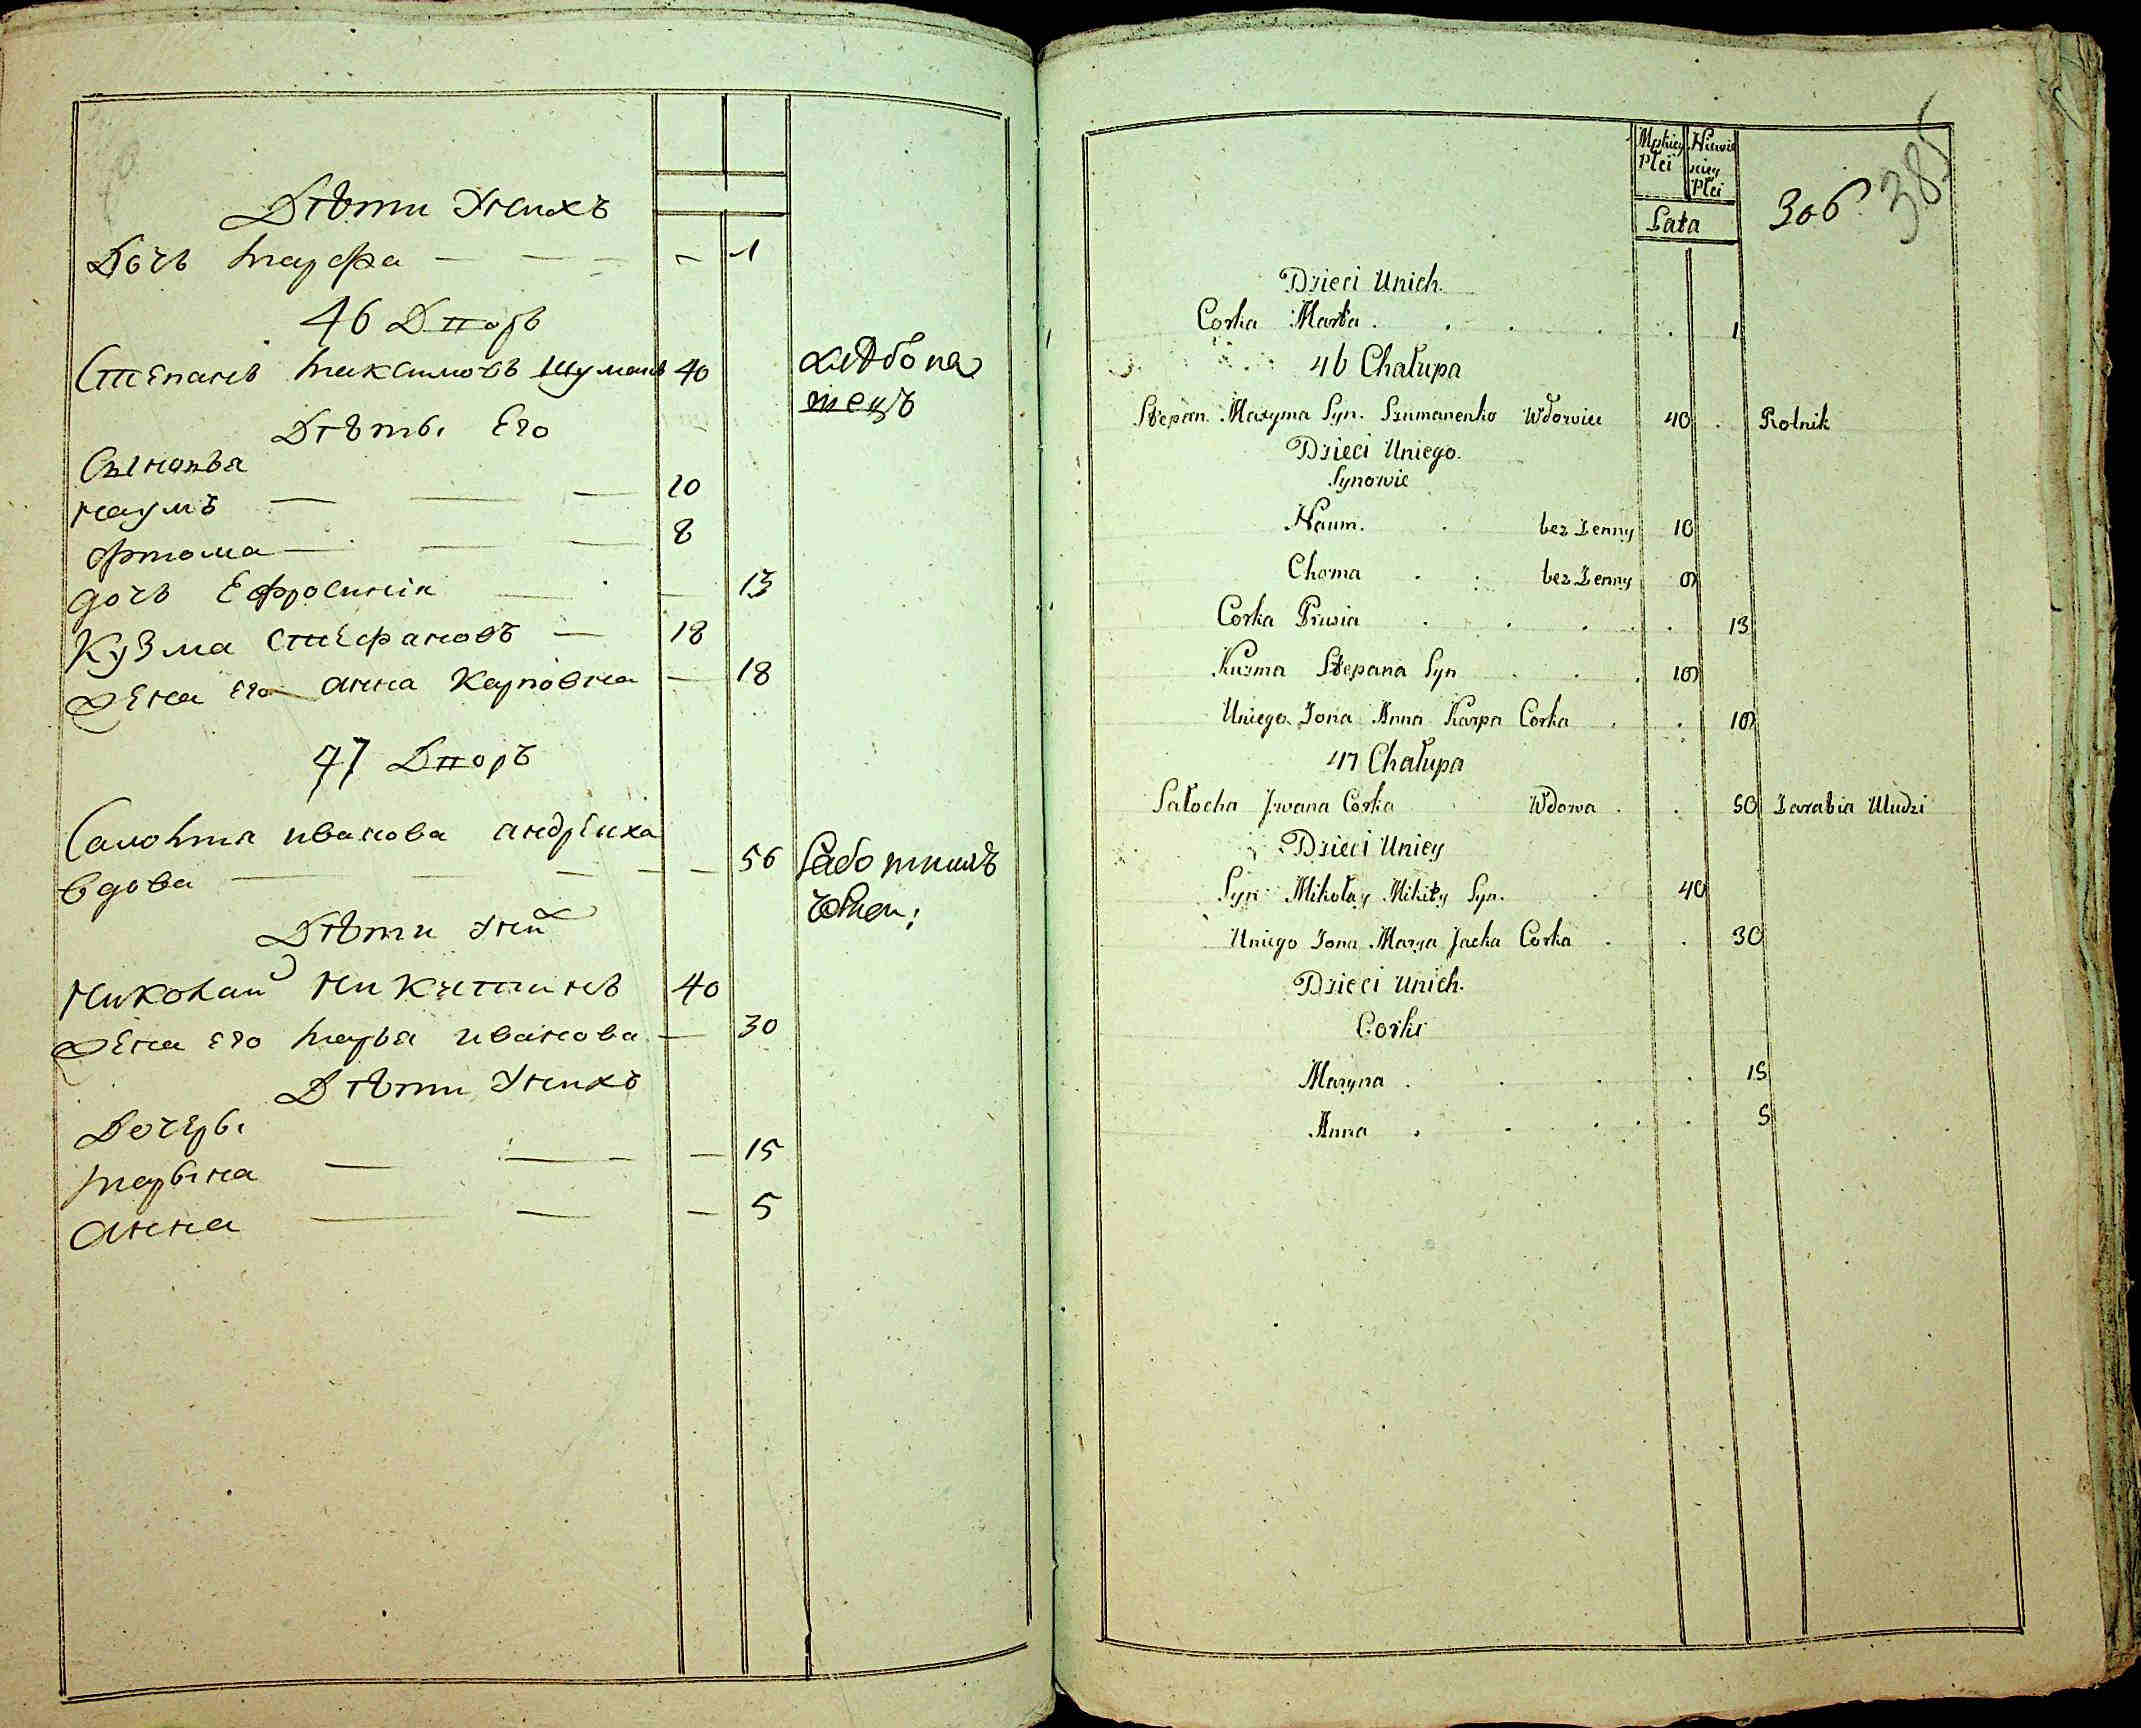 Дѣти Унихъ
Дочь Марфа — — — — 1
46 Дворъ
Степанъ Максимовъ Шуманъ 40 хлѣбопа
шецъ
Дѣты Его
Сыновья
Наумъ — — — 10
Фтома — — — 8
дочь Ефросинія — — 13
Кузма Стефановъ — 18
жена его Анна Карповна — 18
47 Дворъ
Саломия иванова андрѣиха
вдова — — — — — 56
Дѣти Уней
Николай Никитинъ 40
жена его Марья иванова — 30
Дѣти Унихъ
Дочеры
Марына — — — — 15
Анна — — — 5
Męskiey Płci Niewieściey Płci
Lata
306.
385
Dzieci Unich.
Corka Marta . . . . . 1
46 Chałupa
Stepan Maxyma Syn. Szumanenko Wdowiec 40 . Rolnik
Dzieci Uniego.
Synowie
Naum. . bez Zenny 10
Choma . . bez Zenny 8
Corka Prusia . . . . . 13
Kuzma Stepana Syn . . . 18
Uniego Zona Anna Karpa Corka . . 18
47 Chałupa
Sałocha Jwana Corka Wdowa . . 50 Zarabia Uludzi
Dzieci Uniey
Syn Mikołay Mikity Syn. . 40
Uniego Zona Marya Jacka Corka . . 30
Dzieci Unich.
Corki
Maryna . . . . 15
Anna . . . . . 5